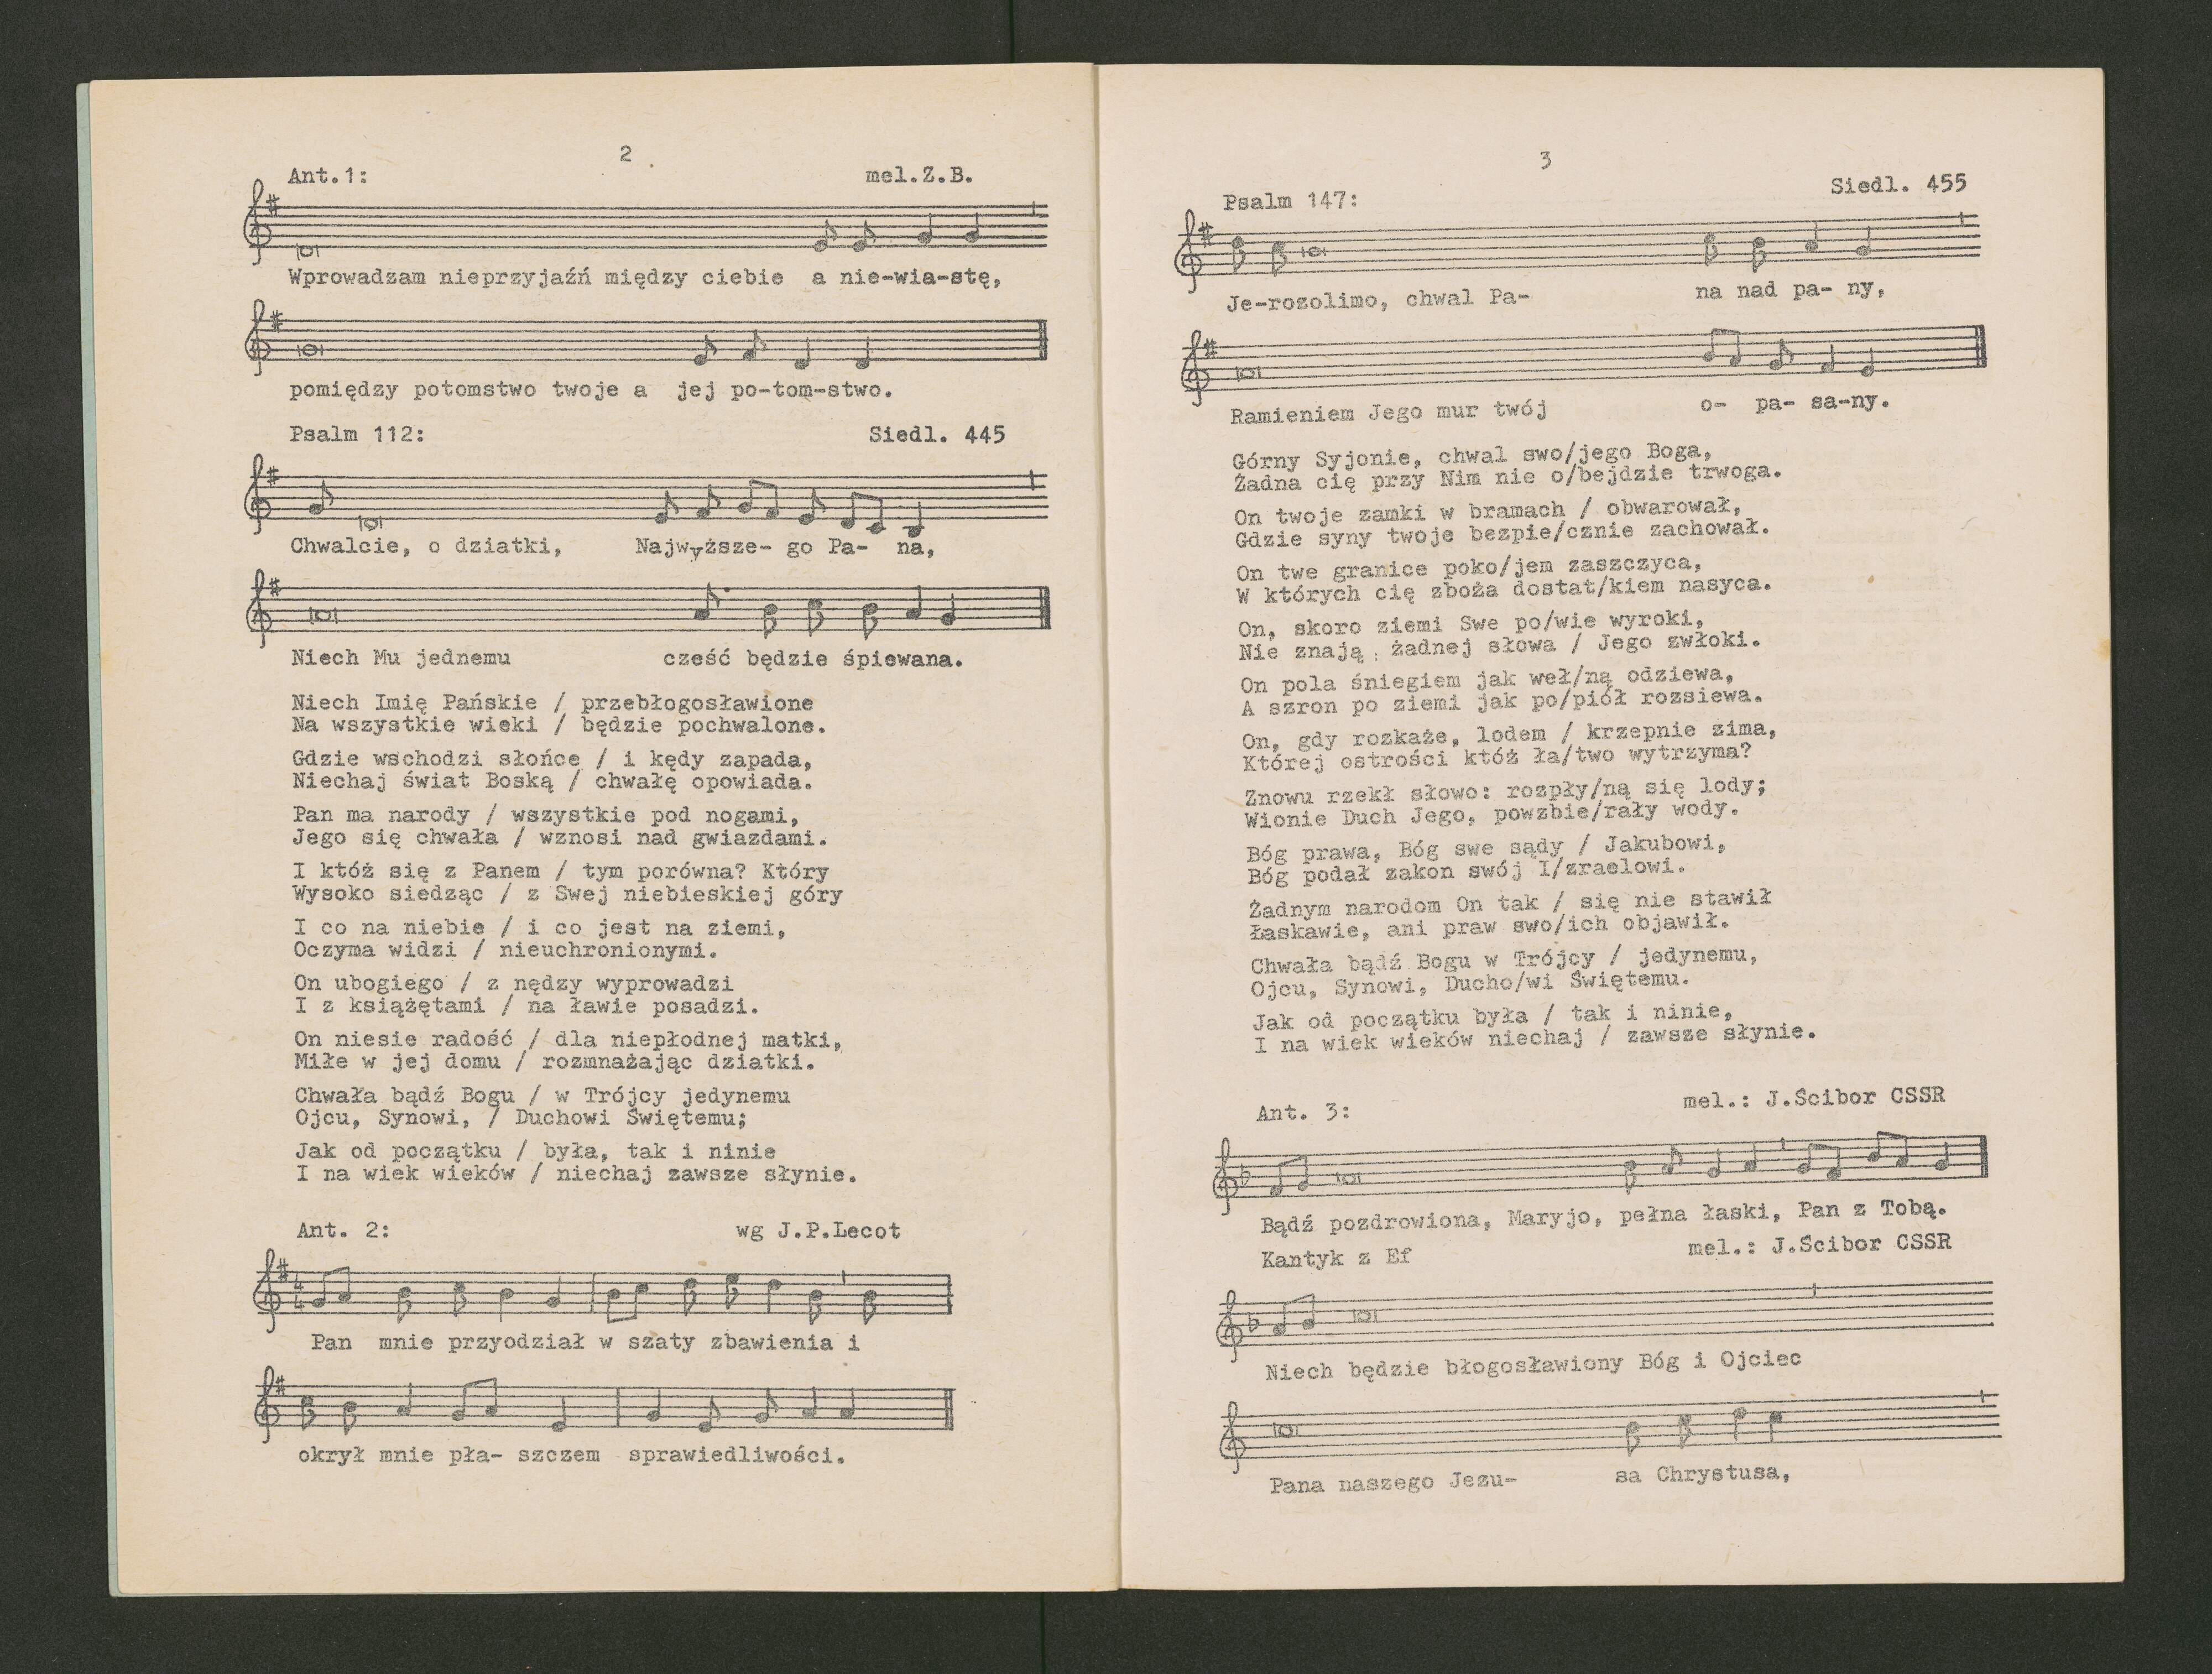 2
Ant.1: mel.Z.B.
Wprowadzam nieprzyjaźń między ciebie a nie-wia-stę,
pomiędzy potomstwo twoje a jej po-tom-stwo.
Psalm 112: Siedl. 445
Chwalcie, o dziatki, Najwyższe- go Pa- na,
Niech Mu jednemu cześć będzie śpiewana.
Niech Imię Pańskie / przebłogosławione
Na wszystkie wieki / będzie pochwalone.
Gdzie wschodzi słońce / i kędy zapada,
Niechaj świat Boską / chwałę opowiada.
Pan ma narody / wszystkie pod nogami,
Jego się chwała / wznosi nad gwiazdami.
I któż się z Panem / tym porówna? Który
Wysoko siedząc / z Swej niebieskiej góry
I co na niebie / i co jest na ziemi,
Oczyma widzi / nieuchronionymi.
On ubogiego / z nędzy wyprowadzi
I z książętami / na ławie posadzi.
On niesie radość / dla niepłodnej matki,
Miłe w jej domu / rozmnażając dziatki.
Chwała bądź Bogu / w Trójcy jedynemu
Ojcu, Synowi, / Duchowi Świętemu;
Jak od początku / była, tak i ninie
I na wiek wieków / niechaj zawsze słynie.
Ant. 2: wg J.P.Lecot
4
4
Pan mnie przyodział w szaty zbawienia i
okrył mnie pła- szczem sprawiedliwości.
3
Psalm 147: Siedl. 455
Je-rozolimo, chwal Pa- na nad pa- ny,
Ramieniem Jego mur twój o- pa- sa-ny.
Górny Syjonie, chwal swo/jego Boga,
Żadna cię przy Nim nie o/bejdzie trwoga.
On twoje zamki w bramach / obwarował,
Gdzie syny twoje bezpie/cznie zachował.
On twe granice poko/jem zaszczyca,
W których cię zboża dostat/kiem nasyca.
On, skoro ziemi Swe po/wie wyroki,
Nie znają żadnej słowa / Jego zwłoki.
On pola śniegiem jak weł/ną odziewa,
A szron po ziemi jak po/piół rozsiewa.
On, gdy rozkaże, lodem / krzepnie zima,
Której ostrości któż ła/two wytrzyma?
Znowu rzekł słowo: rozpły/ną się lody;
Wionie Duch Jego, powzbie/rały wody.
Bóg prawa, Bóg swe sądy / Jakubowi,
Bóg podał zakon swój I/zraelowi.
Żadnym narodom On tak / się nie stawił
Łaskawie, ani praw swo/ich objawił.
Chwała bądź Bogu w Trójcy / jedynemu,
Ojcu, Synowi, Ducho/wi Świętemu.
Jak od początku była / tak i ninie,
I na wiek wieków niechaj / zawsze słynie.
Ant. 3: mel.: J.Ścibor CSSR
Bądź pozdrowiona, Maryjo, pełna łaski, Pan z Tobą.
Kantyk z Ef mel.: J.Ścibor CSSR
Niech będzie błogosławiony Bóg i Ojciec
Pana naszego Jezu- sa Chrystusa,